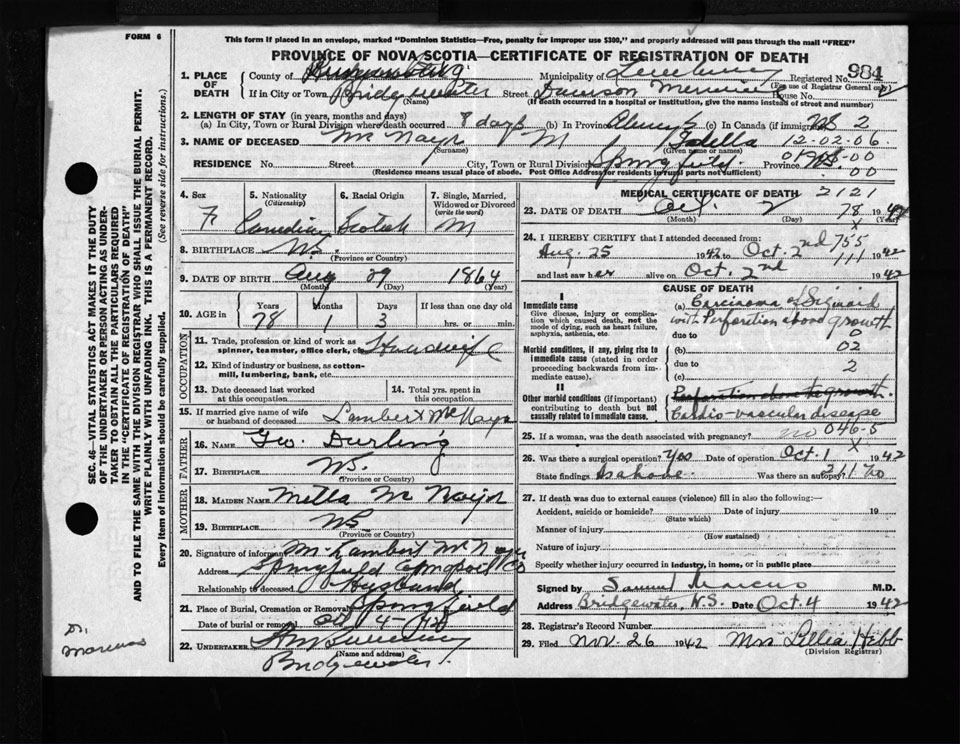 FORM 6
This form if placed in an envelope, marked "Dominion Statistics—Free, penalty for improper use $300," and properly addressed will pass through the mail "FREE"
PROVINCE OF NOVA SCOTIA—CERTIFICATE OF REGISTRATION OF DEATH
984
1. PLACE OF DEATH County of Municipality of Lunenburg Registered No.
(For use of Registrar General only)
If in City or Town Bridgewater Street Dawson Memorial House No.
(Name) (If death occurred in a hospital or institution, give the name instead of street and number)
2. LENGTH OF STAY (in years, months and days)
(a) In City, Town or Rural Division where death occurred 8 days (b) In Province Always (c) In Canada (if immigrant)
3. NAME OF DECEASED McNayr M 12-02-06
(Surname) (Given name or names)
RESIDENCE No. Street City, Town or Rural Division Springfield Province N.S.
(Residence means usual place of abode. Post Office Address for residents in rural parts not sufficient)
4. Sex F
5. Nationality (Citizenship) Canadian
6. Racial Origin Scotch
7. Single, Married, Widowed or Divorced (write the word) M
8. BIRTHPLACE N.S.
(Province or Country)
9. DATE OF BIRTH Aug 29 1864
(Month) (Day)
10. AGE in Years Months Days If less than one day old
78 1 3 hrs. or min.
OCCUPATION
11. Trade, profession or kind of work as spinner, teamster, office clerk, etc. Housewife
12. Kind of industry or business, as cotton-mill, lumbering, bank, etc.
13. Date deceased last worked at this occupation
14. Total yrs. spent in this occupation
15. If married give name of wife or husband of deceased Lambert McNayr
FATHER
16. NAME Geo. Durling
17. BIRTHPLACE N.S.
(Province or Country)
MOTHER
18. MAIDEN NAME McNayr
19. BIRTHPLACE N.S.
(Province or Country)
20. Signature of informant Lambert McNayr
Address Springfield Annapolis Co
Relationship to deceased Husband
21. Place of Burial, Cremation or Removal Springfield
Date of burial or removal Oct 4-42
22. UNDERTAKER
(Name and address)
Bridgewater
MEDICAL CERTIFICATE OF DEATH 2121
23. DATE OF DEATH Oct. 2 78 1942
(Month) (Day) (Year)
24. I HEREBY CERTIFY that I attended deceased from:
Aug. 25 1942 to Oct. 2nd 1942
and last saw her alive on Oct. 2nd 1942
CAUSE OF DEATH
I
Immediate cause
Give disease, injury or complication which caused death, not the mode of dying, such as heart failure, asphyxia, asthenia, etc.
(a) Carcinoma of Sigmoid with Perforation above growth
due to
Morbid conditions, if any, giving rise to immediate cause (stated in order proceeding backwards from immediate cause).
(b) 02
due to 2
(c)
II
Other morbid conditions (if important) contributing to death but not causally related to immediate cause.
Perforation above growth
Cardio-vascular disease
25. If a woman, was the death associated with pregnancy? no 046-5
26. Was there a surgical operation? Yes Date of operation Oct. 1 1942
State findings As above Was there an autopsy? no
27. If death was due to external causes (violence) fill in also the following:—
Accident, suicide or homicide? Date of injury 19
(State which)
Manner of injury
(How sustained)
Nature of injury
Specify whether injury occurred in industry, in home, or in public place
Signed by Samuel Marcus M.D.
Address Bridgewater, N.S. Date Oct. 4 1942
28. Registrar's Record Number
29. Filed Nov. 26 1942 Mrs Lillia Hebb
(Division Registrar)
SEC. 46—VITAL STATISTICS ACT MAKES IT THE DUTY OF THE UNDERTAKER OR PERSON ACTING AS UNDERTAKER TO OBTAIN ALL THE PARTICULARS REQUIRED IN THE "CERTIFICATE OF REGISTRATION OF DEATH"
AND TO FILE THE SAME WITH THE DIVISION REGISTRAR WHO SHALL ISSUE THE BURIAL PERMIT.
WRITE PLAINLY WITH UNFADING INK. THIS IS A PERMANENT RECORD.
Every item of information should be carefully supplied. (See reverse side for instructions.)
Dr. Marcus